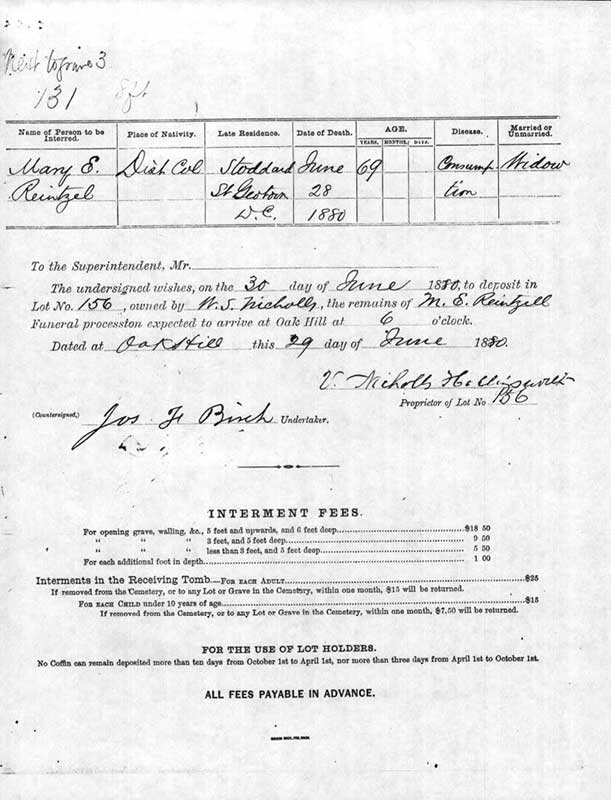 Next to grave 3
131 8ft
Name of Person to be Interred. Place of Nativity. Late Residence. Date of Death. AGE. YEARS. MONTHS. DAYS. Disease. Married or Unmarried.
Mary E. Dist Col Stoddard June 69 Consump Widow
Reintzel St Geotown 28 tion
D.C. 1880
To the Superintendent, Mr.
The undersigned wishes, on the 30 day of June 1880, to deposit in
Lot No. 156, owned by W. S. Nicholls, the remains of M. E. Reintzell
Funeral procession expected to arrive at Oak Hill at 6 o'clock.
Dated at Oak Hill this 29 day of June 1880.
V. Nicholls
Proprietor of Lot No 156
(Countersigned,) Jos F Birch Undertaker.
INTERMENT FEES.
For opening grave, walling, &c., 5 feet and upwards, and 6 feet deep $18 50
" " " 3 feet, and 5 feet deep 9 50
" " " less than 3 feet, and 5 feet deep 5 50
For each additional foot in depth 1 00
Interments in the Receiving Tomb.—FOR EACH ADULT $25
If removed from the Cemetery, or to any Lot or Grave in the Cemetery, within one month, $15 will be returned.
FOR EACH CHILD under 10 years of age $15
If removed from the Cemetery, or to any Lot or Grave in the Cemetery, within one month, $7.50 will be returned.
FOR THE USE OF LOT HOLDERS.
No Coffin can remain deposited more than ten days from October 1st to April 1st, nor more than three days from April 1st to October 1st.
ALL FEES PAYABLE IN ADVANCE.